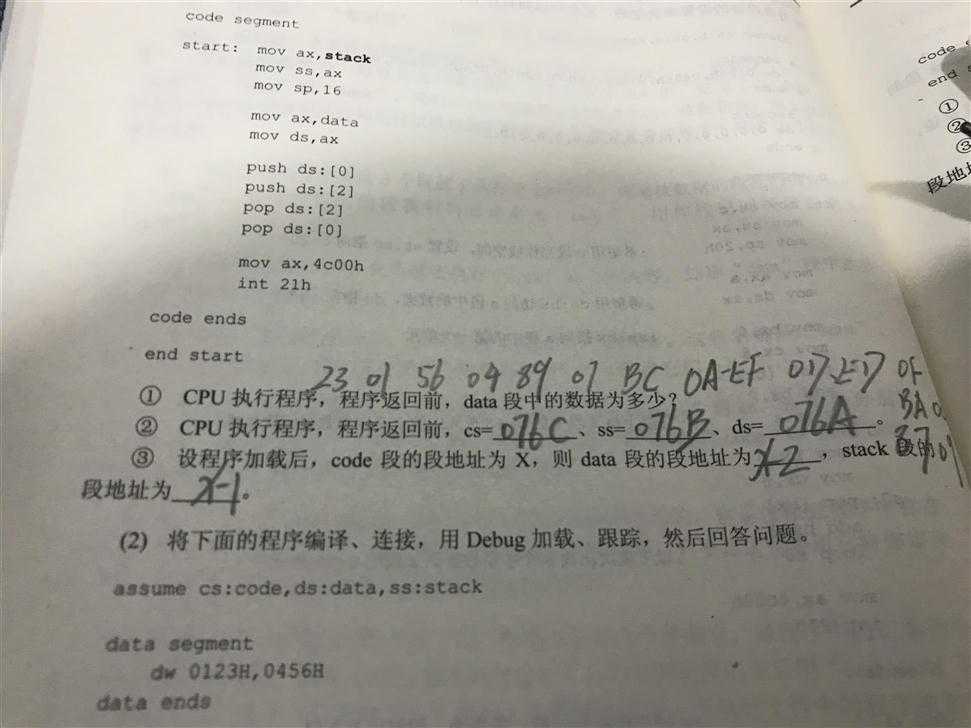 code segment
start: mov ax,stack
mov ss,ax
mov sp,16
mov ax,data
mov ds,ax
push ds:[0]
push ds:[2]
pop ds:[2]
pop ds:[0]
mov ax,4c00h
int 21h
code ends
end start
23 01 56 04 89 07 BC 0A EF
① CPU 执行程序，程序返回前，data 段中的数据为多少？
② CPU 执行程序，程序返回前，cs=076C、ss=076B、ds=076A。
③ 设程序加载后，code 段的段地址为 X，则 data 段的段地址为X-2，stack 段的
段地址为X-1。
(2) 将下面的程序编译、连接，用 Debug 加载、跟踪，然后回答问题。
assume cs:code,ds:data,ss:stack
data segment
dw 0123H,0456H
data ends
code
end
①
②
③
段地